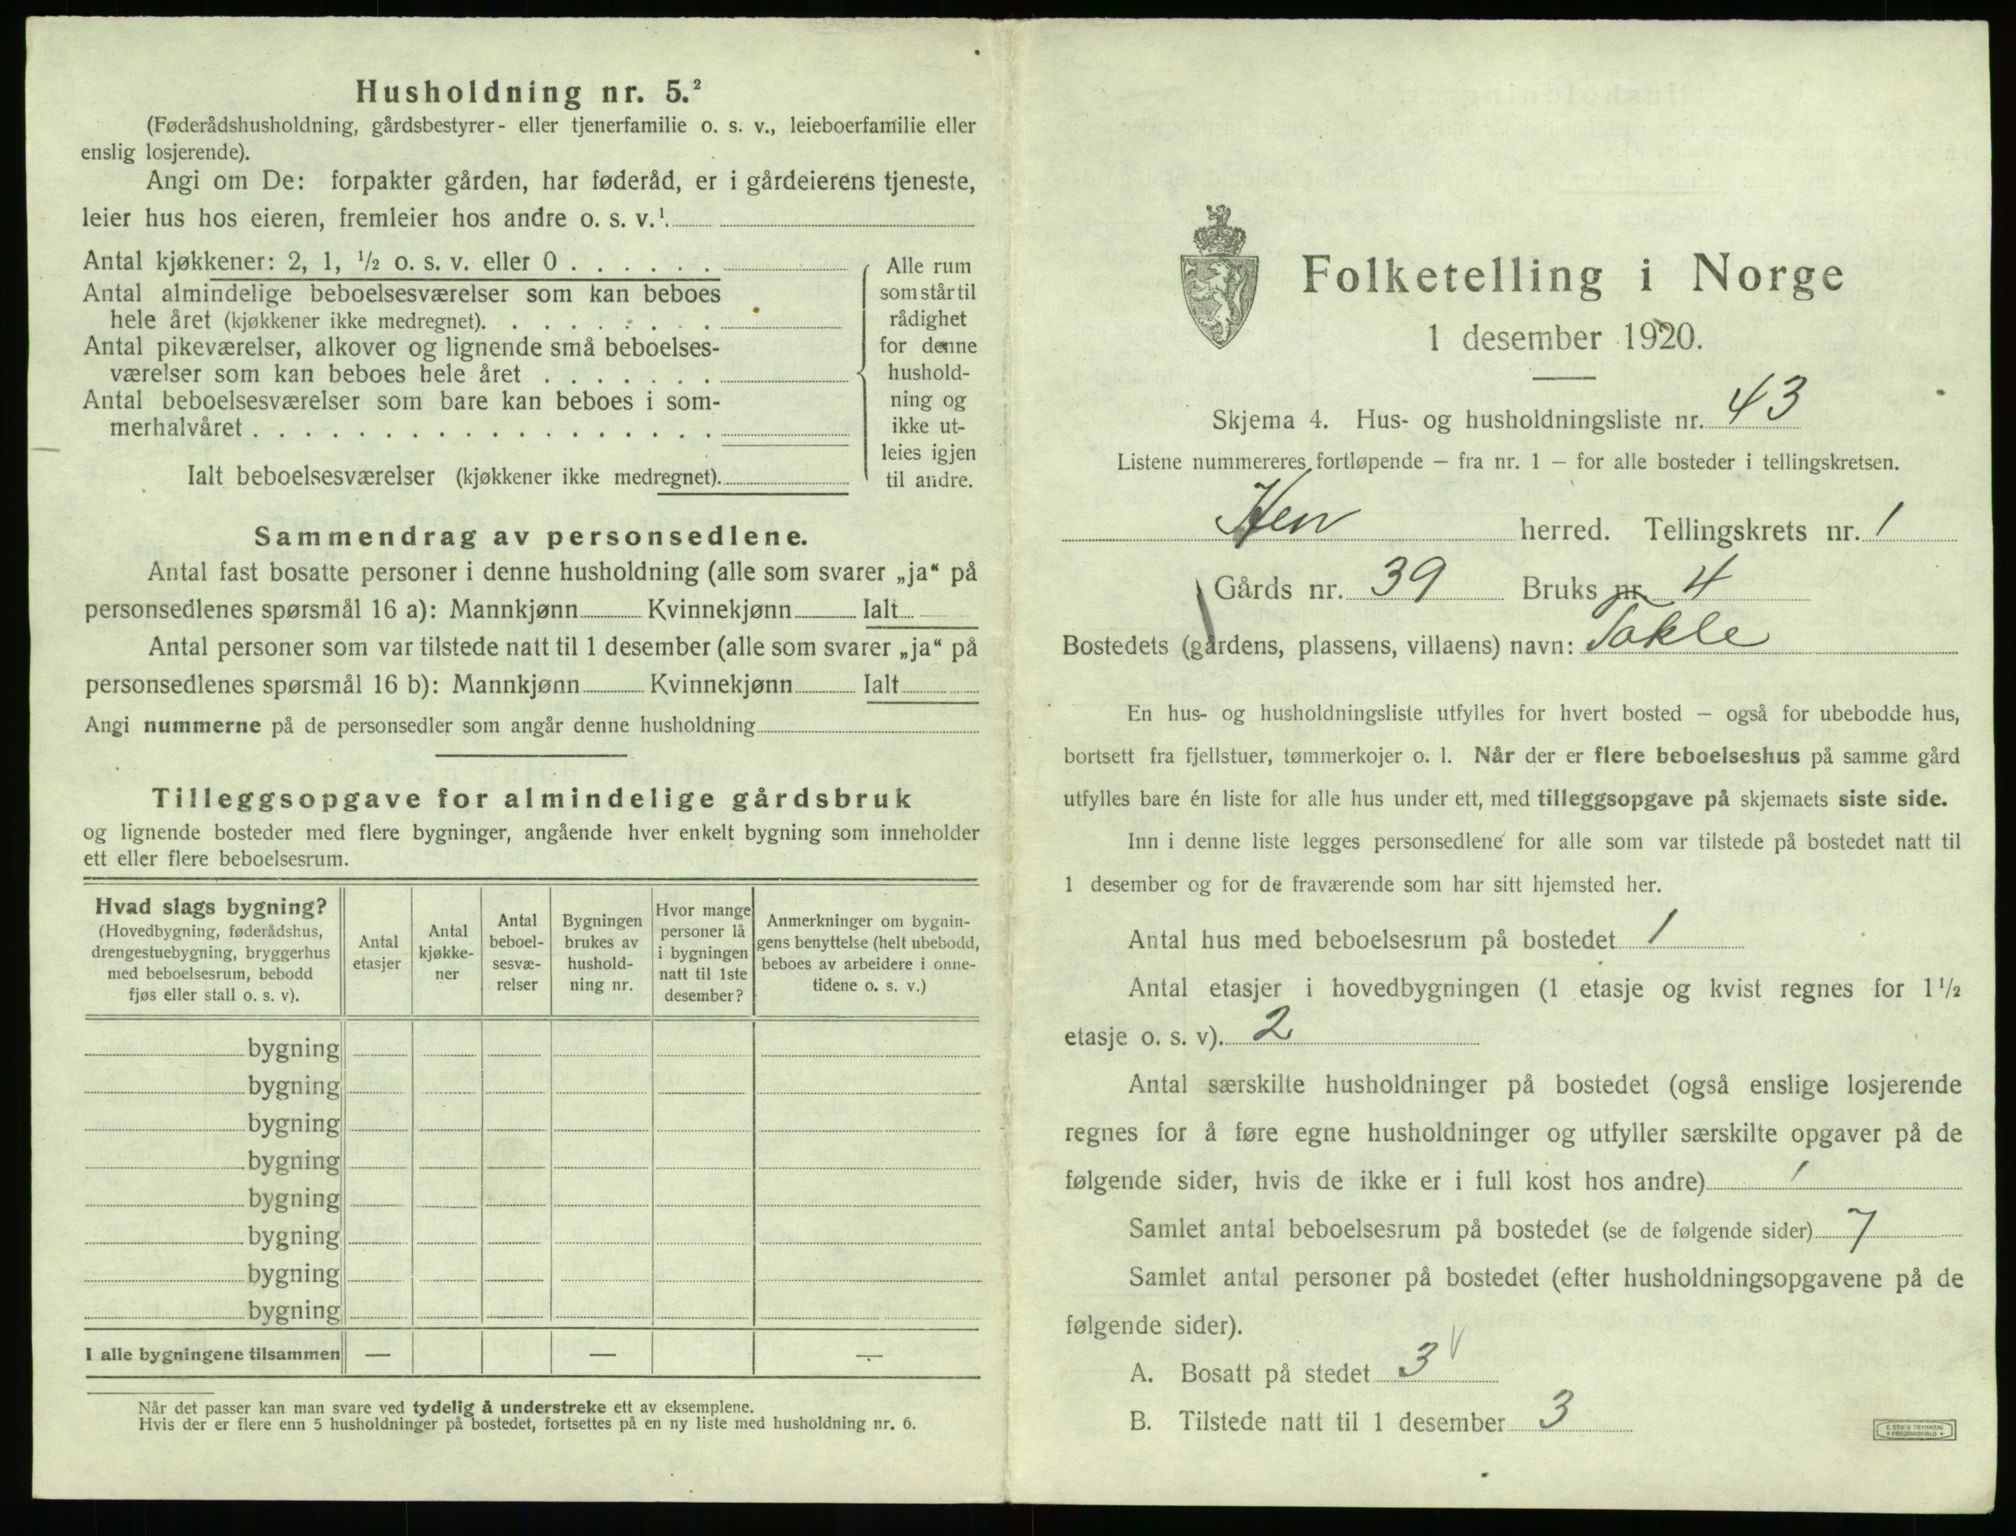 Husholdning nr. 5.²
(Føderådshusholdning, gårdsbestyrer- eller tjenerfamilie o. s. v., leieboerfamilie eller
enslig losjerende).
Angi om De: forpakter gården, har føderåd, er i gårdeierens tjeneste,
leier hus hos eieren, fremleier hos andre o. s. v.¹
Antal kjøkkener: 2, 1, ½ o. s. v. eller 0 . . . . . .
Antal almindelige beboelsesværelser som kan beboes
hele året (kjøkkener ikke medregnet). . . . . . . . .
Antal pikeværelser, alkover og lignende små beboelses-
værelser som kan beboes hele året . . . . . . .
Antal beboelsesværelser som bare kan beboes i som-
merhalvåret . . . . . . . . . . . . . . . . . .
Ialt beboelsesværelser (kjøkkener ikke medregnet).
Alle rum
som står til
rådighet
for denne
hushold-
ning og
ikke ut-
leies igjen
til andre.
Sammendrag av personsedlene.
Antal fast bosatte personer i denne husholdning (alle som svarer „ja“ på
personsedlenes spørsmål 16 a): Mannkjønn Kvinnekjønn Ialt
Antal personer som var tilstede natt til 1 desember (alle som svarer „ja“ på
personsedlenes spørsmål 16 b): Mannkjønn Kvinnekjønn Ialt
Angi nummerne på de personsedler som angår denne husholdning
Tilleggsopgave for almindelige gårdsbruk
og lignende bosteder med flere bygninger, angående hver enkelt bygning som inneholder
ett eller flere beboelsesrum.
Hvad slags bygning?
(Hovedbygning, føderådshus,
drengestuebygning, bryggerhus
med beboelsesrum, bebodd
fjøs eller stall o. s. v).
Antal
etasjer
Antal
kjøkke-
ner
Antal
beboel-
sesvæ-
relser
Bygningen
brukes av
hushold-
ning nr.
Hvor mange
personer lå
i bygningen
natt til 1ste
desember?
Anmerkninger om bygnin-
gens benyttelse (helt ubebodd,
beboes av arbeidere i onne-
tidene o. s. v.)
bygning
bygning
bygning
bygning
bygning
bygning
bygning
bygning
I alle bygningene tilsammen — — —
Når det passer kan man svare ved tydelig å understreke ett av eksemplene.
Hvis der er flere enn 5 husholdninger på bostedet, fortsettes på en ny liste med husholdning nr. 6.
Folketelling i Norge
1 desember 1920.
Skjema 4. Hus- og husholdningsliste nr. 43
Listene nummereres fortløpende – fra nr. 1 – for alle bosteder i tellingskretsen.
Hen herred. Tellingskrets nr. 1
Gårds nr. 39 Bruks nr. 4
Bostedets (gårdens, plassens, villaens) navn: Tokle
En hus- og husholdningsliste utfylles for hvert bosted – også for ubebodde hus,
bortsett fra fjellstuer, tømmerkojer o. l. Når der er flere beboelseshus på samme gård
utfylles bare én liste for alle hus under ett, med tilleggsopgave på skjemaets siste side.
Inn i denne liste legges personsedlene for alle som var tilstede på bostedet natt til
1 desember og for de fraværende som har sitt hjemsted her.
Antal hus med beboelsesrum på bostedet 1
Antal etasjer i hovedbygningen (1 etasje og kvist regnes for 1½
etasje o. s. v). 2
Antal særskilte husholdninger på bostedet (også enslige losjerende
regnes for å føre egne husholdninger og utfyller særskilte opgaver på de
følgende sider, hvis de ikke er i full kost hos andre) 1
Samlet antal beboelsesrum på bostedet (se de følgende sider) 7
Samlet antal personer på bostedet (efter husholdningsopgavene på de
følgende sider).
A. Bosatt på stedet 3
B. Tilstede natt til 1 desember 3